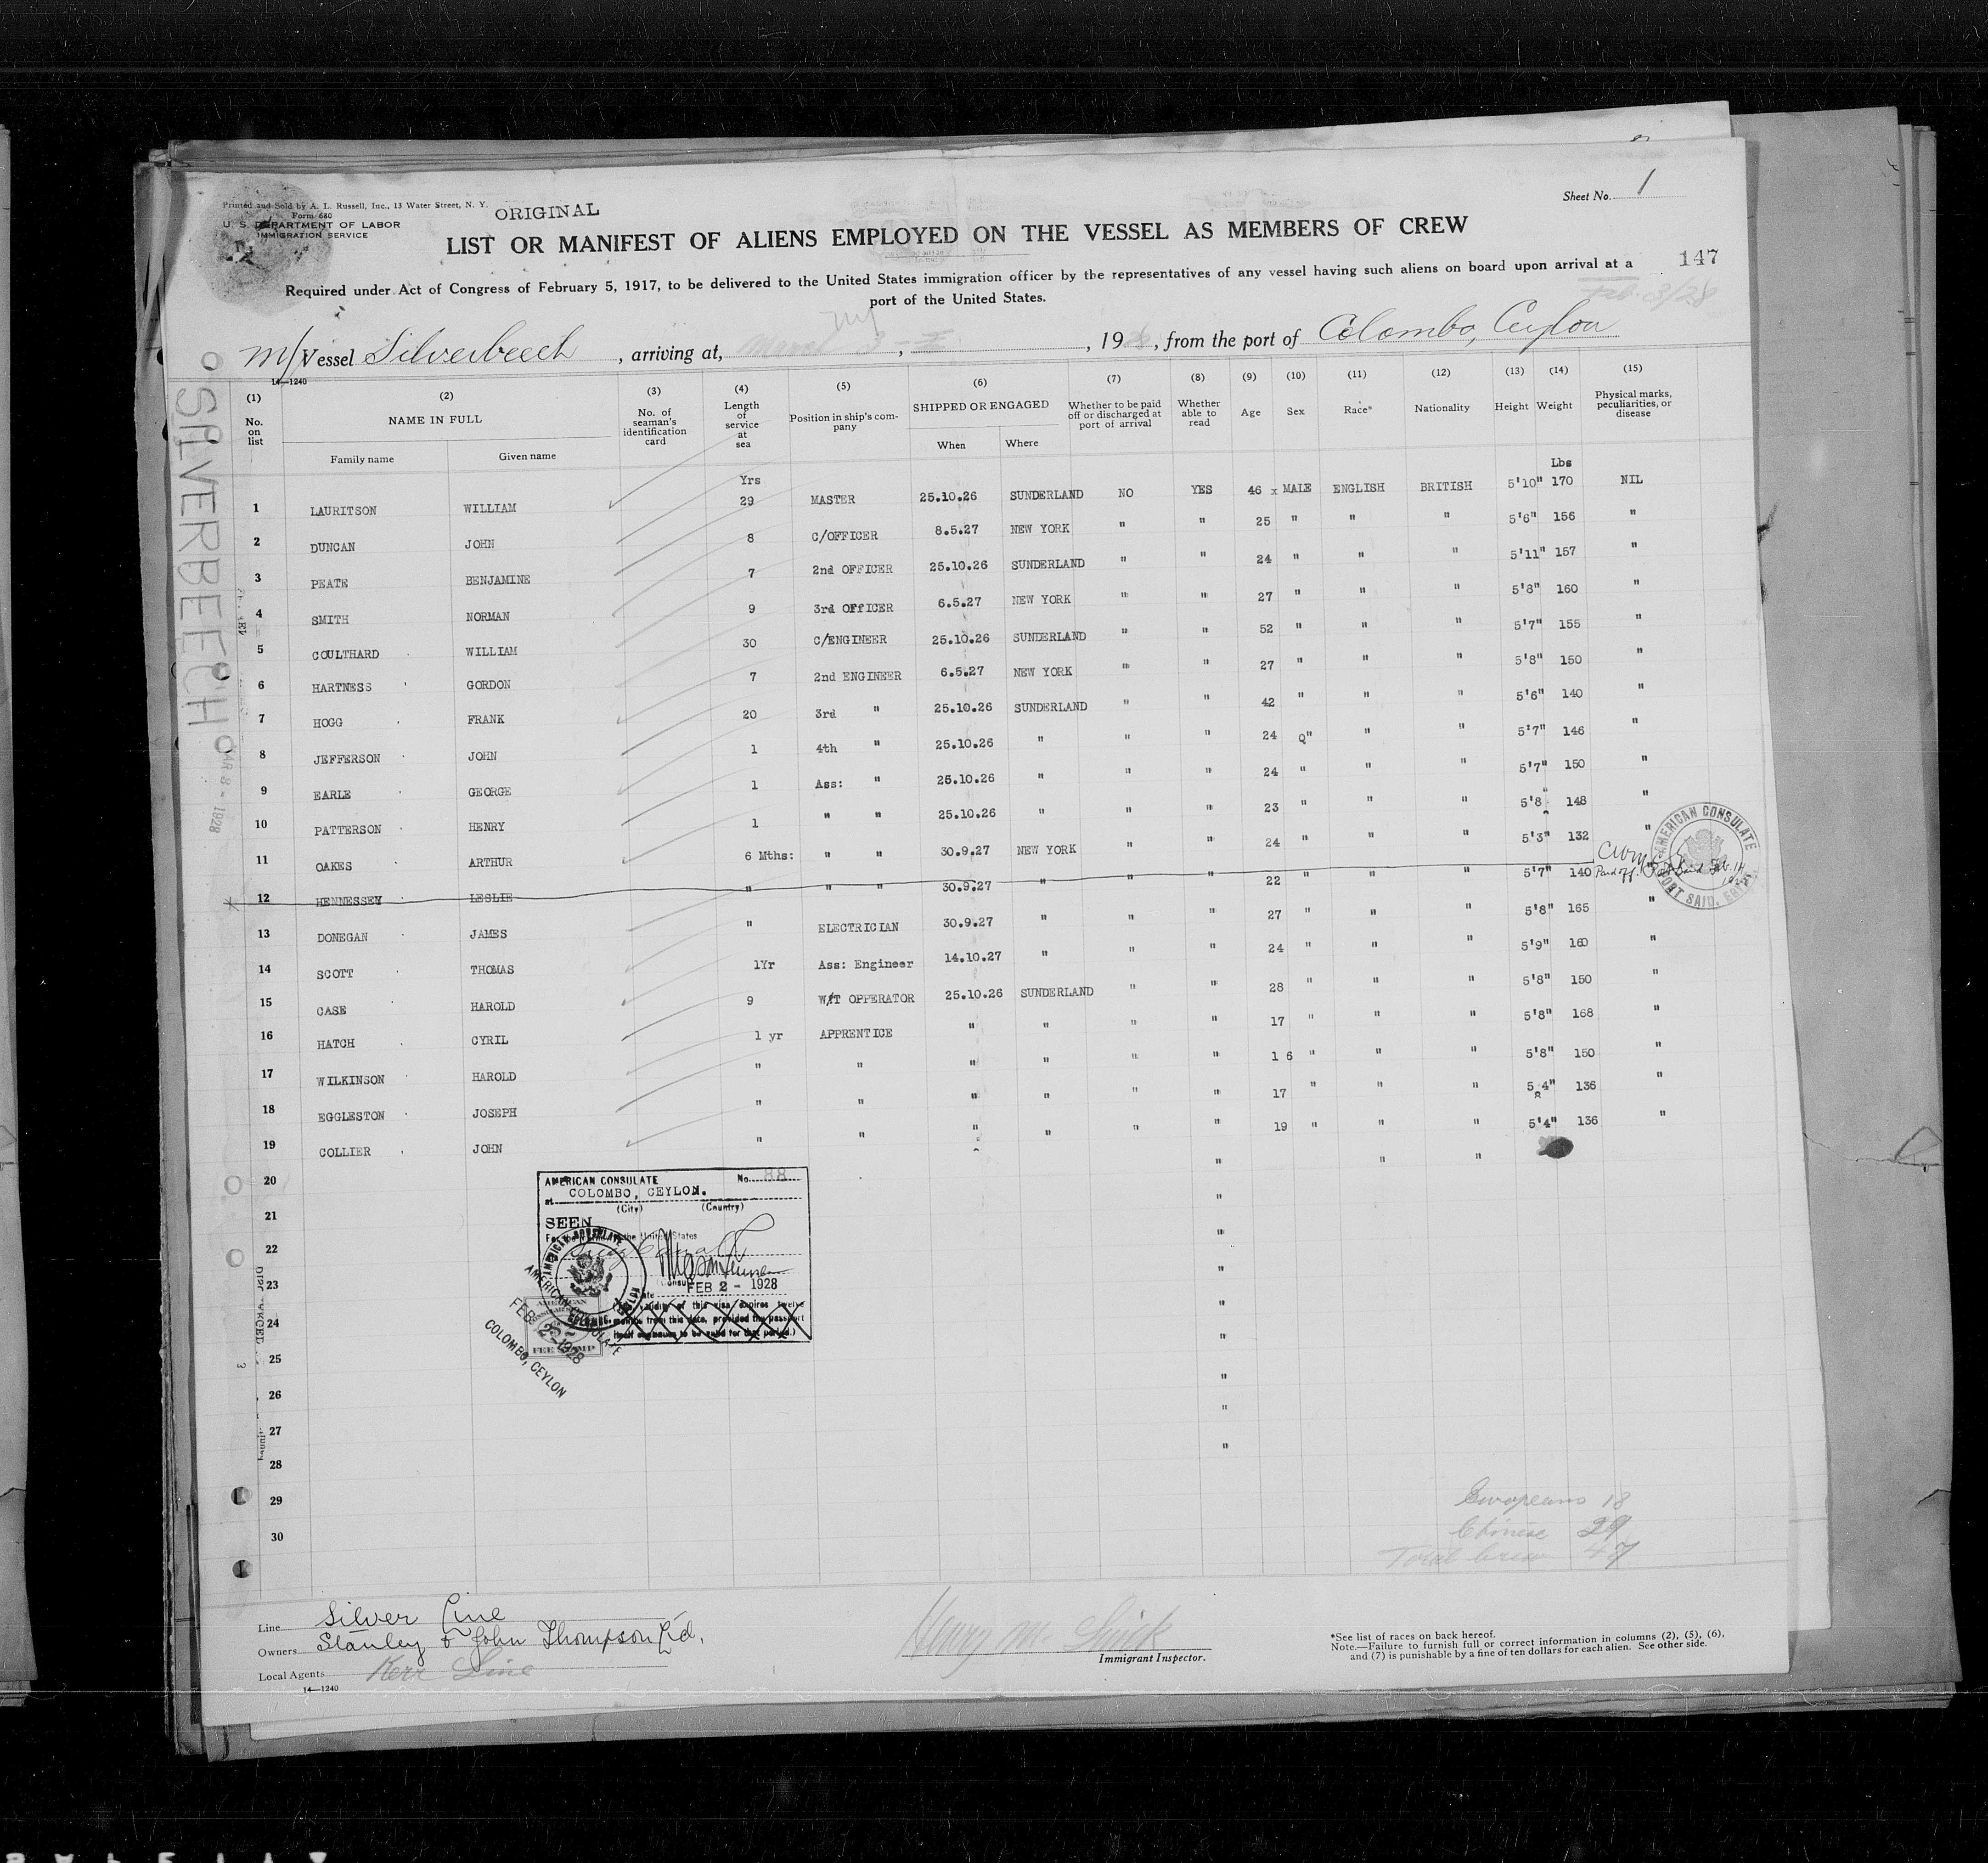 Sheet No. 1
Printed and Sold by A. L. Russell, Inc., 13 Water Street, N. Y.
Form 680
U. S. DEPARTMENT OF LABOR
IMMIGRATION SERVICE
ORIGINAL
LIST OR MANIFEST OF ALIENS EMPLOYED ON THE VESSEL AS MEMBERS OF CREW
147
Required under Act of Congress of February 5, 1917, to be delivered to the United States immigration officer by the representatives of any vessel having such aliens on board upon arrival at a
port of the United States.
Feb. 3/28
m/Vessel Silverbeech, arriving at, March 3, 19, from the port of Colombo, Ceylon
14—1240
(1) (2) (3) (4) (5) (6) (7) (8) (9) (10) (11) (12) (13) (14) (15)
No. on list NAME IN FULL No. of seaman's identification card Length of service at sea Position in ship's company SHIPPED OR ENGAGED Whether to be paid off or discharged at port of arrival Whether able to read Age Sex Race* Nationality Height Weight Physical marks, peculiarities, or disease
Family name Given name When Where
Yrs Lbs
1 LAURITSON WILLIAM 29 MASTER 25.10.26 SUNDERLAND NO YES 46 x MALE ENGLISH BRITISH 5'10" 170 NIL
2 DUNCAN JOHN 8 C/OFFICER 8.5.27 NEW YORK " " 25 " " " 5'6" 156 "
3 PEATE BENJAMINE 7 2nd OFFICER 25.10.26 SUNDERLAND " " 24 " " " 5'11" 157 "
4 SMITH NORMAN 9 3rd OFFICER 6.5.27 NEW YORK " " 27 " " " 5'8" 160 "
5 COULTHARD WILLIAM 30 C/ENGINEER 25.10.26 SUNDERLAND " " 52 " " " 5'7" 155 "
6 HARTNESS GORDON 7 2nd ENGINEER 6.5.27 NEW YORK " " 27 " " " 5'8" 150 "
7 HOGG FRANK 20 3rd " 25.10.26 SUNDERLAND " " 42 " " " 5'6" 140 "
8 JEFFERSON JOHN 1 4th " 25.10.26 " " " 24 Q" " " 5'7" 146 "
9 EARLE GEORGE 1 Ass: " 25.10.26 " " " 24 " " " 5'7" 150 "
10 PATTERSON HENRY 1 " " 25.10.26 " " " 23 " " " 5'8" 148 "
11 OAKES ARTHUR 6 Mths: " " 30.9.27 NEW YORK " " 24 " " " 5'3" 132 "
12 HENNESSEY LESLIE " " " 30.9.27 " " " 22 " " " 5'7" 140 Paid off Port Said Feb. 14
13 DONEGAN JAMES " ELECTRICIAN 30.9.27 " " " 27 " " " 5'8" 165 "
14 SCOTT THOMAS 1Yr Ass: Engineer 14.10.27 " " " 24 " " " 5'9" 160 "
15 CASE HAROLD 9 W/T OPPERATOR 25.10.26 SUNDERLAND " " 28 " " " 5'8" 150 "
16 HATCH CYRIL 1 yr APPRENTICE " " " " 17 " " " 5'8" 168 "
17 WILKINSON HAROLD " " " " " " 1 6 " " " 5'8" 150 "
18 EGGLESTON JOSEPH " " " " " " 17 " " " 5 4" 136 "
19 COLLIER JOHN " " " " " " 19 " " " 5'4" 136 "
20 " " "
21 "
22 "
23 "
24 "
25 "
26 "
27 "
28 "
29
30
AMERICAN CONSULATE
PORT SAID, EGYPT
SILVERBEECH
MAR 8 - 1928
AMERICAN CONSULATE No. 88
at COLOMBO, CEYLON.
(City) (Country)
SEEN
For the journey to the United States
Consul
FEB 2 - 1928
Date
(The validity of this visa expires twelve
months from this date, provided the passport
itself continues to be valid for that period.)
AMERICAN CONSULATE
COLOMBO, CEYLON
AMERICAN CONSULATE
FEB 2 - 1928
COLOMBO, CEYLON
FEE STAMP
Europeans 18
Chinese 29
Total Crew 47
Line Silver Line
Owners Stanley & John Thompson Ltd.
Local Agents Kerr Line
14—1240
Immigrant Inspector.
*See list of races on back hereof.
Note.—Failure to furnish full or correct information in columns (2), (5), (6),
and (7) is punishable by a fine of ten dollars for each alien. See other side.